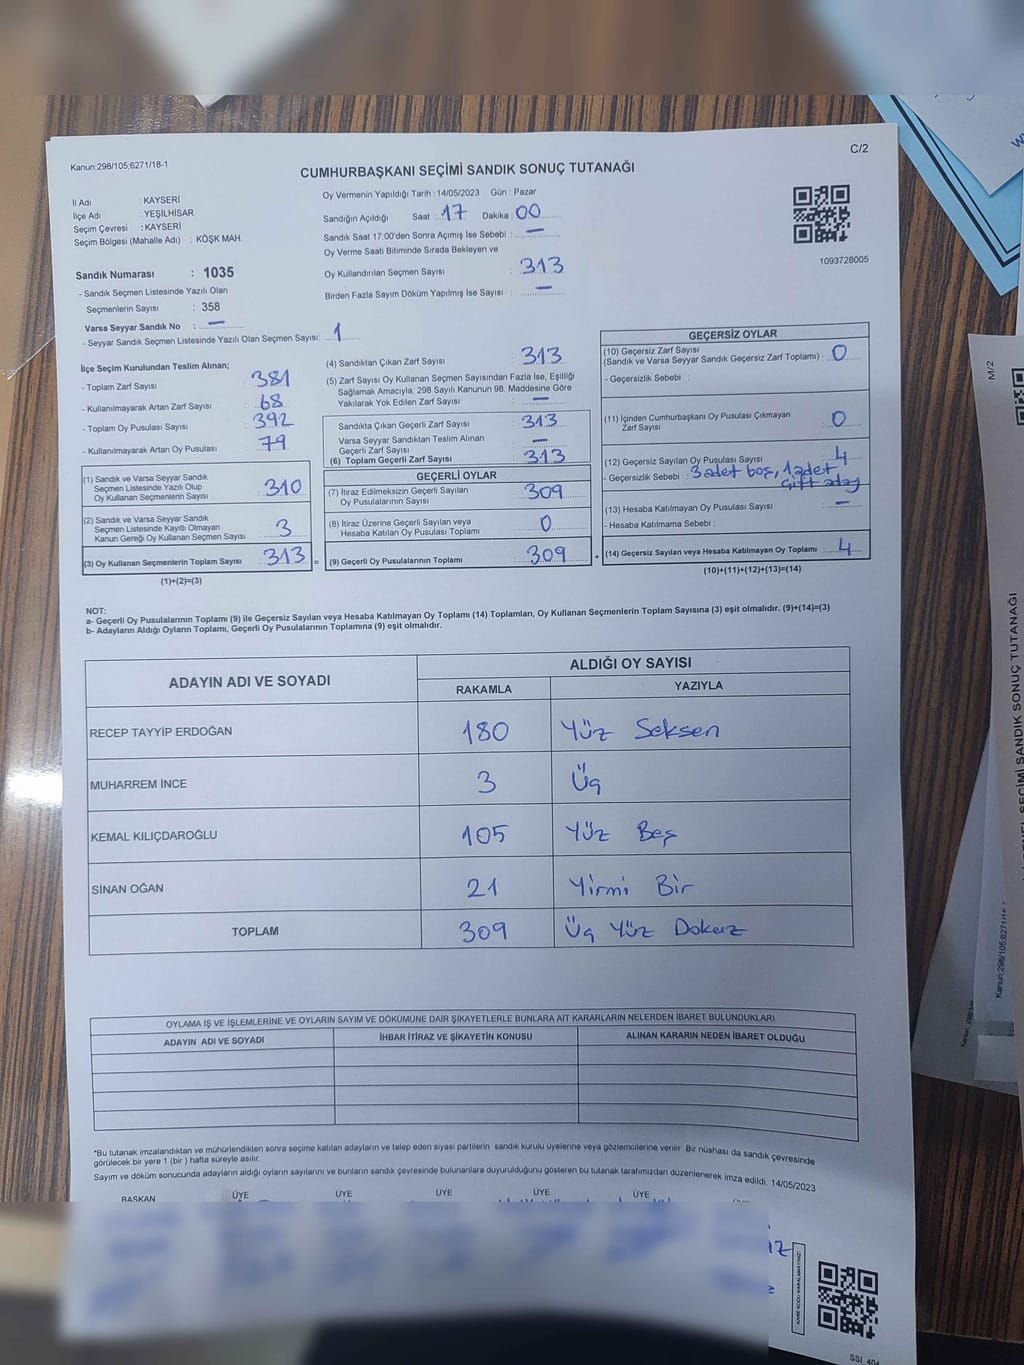 Kanun;298/105;6271/18-1
C/2
CUMHURBAŞKANI SEÇİMİ SANDIK SONUÇ TUTANAĞI
İl Adı : KAYSERİ
İlçe Adı : YEŞİLHİSAR
Seçim Çevresi : KAYSERİ
Seçim Bölgesi (Mahalle Adı) : KÖŞK MAH.
Sandık Numarası : 1035
- Sandık Seçmen Listesinde Yazılı Olan
Seçmenlerin Sayısı : 358
Varsa Seyyar Sandık No : —
- Seyyar Sandık Seçmen Listesinde Yazılı Olan Seçmen Sayısı: 1
Oy Vermenin Yapıldığı Tarih : 14/05/2023 Gün : Pazar
Sandığın Açıldığı Saat : 17 Dakika : 00
Sandık Saat 17:00'den Sonra Açımış İse Sebebi : —
Oy Verme Saati Bitiminde Sırada Bekleyen ve
Oy Kullandırılan Seçmen Sayısı : 313
Birden Fazla Sayım Döküm Yapılmış İse Sayısı : —
1093728005
İlçe Seçim Kurulundan Teslim Alınan;
- Toplam Zarf Sayısı : 381
- Kullanılmayarak Artan Zarf Sayısı : 68
- Toplam Oy Pusulası Sayısı : 392
- Kullanılmayarak Artan Oy Pusulası : 79
(1) Sandık ve Varsa Seyyar Sandık
Seçmen Listesinde Yazılı Olup
Oy Kullanan Seçmenlerin Sayısı : 310
(2) Sandık ve Varsa Seyyar Sandık
Seçmen Listesinde Kayıtlı Olmayan
Kanun Gereği Oy Kullanan Seçmen Sayısı : 3
(3) Oy Kullanan Seçmenlerin Toplam Sayısı : 313 =
(1)+(2)=(3)
(4) Sandıktan Çıkan Zarf Sayısı : 313
(5) Zarf Sayısı Oy Kullanan Seçmen Sayısından Fazla İse, Eşitliği
Sağlamak Amacıyla; 298 Sayılı Kanunun 98. Maddesine Göre
Yakılarak Yok Edilen Zarf Sayısı : —
Sandıkta Çıkan Geçerli Zarf Sayısı : 313
Varsa Seyyar Sandıktan Teslim Alınan
Geçerli Zarf Sayısı : —
(6) Toplam Geçerli Zarf Sayısı : 313
GEÇERLİ OYLAR
(7) İtiraz Edilmeksizin Geçerli Sayılan
Oy Pusulalarının Sayısı : 309
(8) İtiraz Üzerine Geçerli Sayılan veya
Hesaba Katılan Oy Pusulaları Toplamı : 0
(9) Geçerli Oy Pusulalarının Toplamı : 309 +
GEÇERSİZ OYLAR
(10) Geçersiz Zarf Sayısı
(Sandık ve Varsa Seyyar Sandık Geçersiz Zarf Toplamı) : 0
- Geçersizlik Sebebi :
(11) İçinden Cumhurbaşkanı Oy Pusulası Çıkmayan
Zarf Sayısı : 0
(12) Geçersiz Sayılan Oy Pusulası Sayısı : 4
- Geçersizlik Sebebi : 3 adet boş, 1 adet
çift aday
(13) Hesaba Katılmayan Oy Pusulası Sayısı : —
- Hesaba Katılmama Sebebi :
(14) Geçersiz Sayılan veya Hesaba Katılmayan Oy Toplamı : 4
(10)+(11)+(12)+(13)=(14)
NOT:
a- Geçerli Oy Pusulalarının Toplamı (9) ile Geçersiz Sayılan veya Hesaba Katılmayan Oy Toplamı (14) Toplamları, Oy Kullanan Seçmenlerin Toplam Sayısına (3) eşit olmalıdır. (9)+(14)=(3)
b- Adayların Aldığı Oyların Toplamı, Geçerli Oy Pusulalarının Toplamına (9) eşit olmalıdır.
ADAYIN ADI VE SOYADI
ALDIĞI OY SAYISI
RAKAMLA YAZIYLA
RECEP TAYYİP ERDOĞAN 180 Yüz Seksen
MUHARREM İNCE 3 Üç
KEMAL KILIÇDAROĞLU 105 Yüz Beş
SİNAN OĞAN 21 Yirmi Bir
TOPLAM 309 Üç Yüz Dokuz
OYLAMA İŞ VE İŞLEMLERİNE VE OYLARIN SAYIM VE DÖKÜMÜNE DAİR ŞİKAYETLERLE BUNLARA AİT KARARLARIN NELERDEN İBARET BULUNDUKLARI
ADAYIN ADI VE SOYADI İHBAR İTİRAZ VE ŞİKAYETİN KONUSU ALINAN KARARIN NEDEN İBARET OLDUĞU
*Bu tutanak imzalandıktan ve mühürlendikten sonra seçime katılan adayların ve talep eden siyasi partilerin sandık kurulu üyelerine veya gözlemcilerine verilir. Bir nüshası da sandık çevresinde
görülecek bir yere 1 (bir) hafta süreyle asılır.
Sayım ve döküm sonucunda adayların aldığı oyların sayılarını ve bunların sandık çevresinde bulunanlara duyurulduğunu gösteren bu tutanak tarafımızdan düzenlenerek imza edildi. 14/05/2023
BAŞKAN ÜYE ÜYE ÜYE ÜYE ÜYE
KARE KODU KARALAMAYINIZ!
M/2
SEÇİMİ SANDIK SONUÇ TUTANAĞI
Kanun;298/105;6271/1